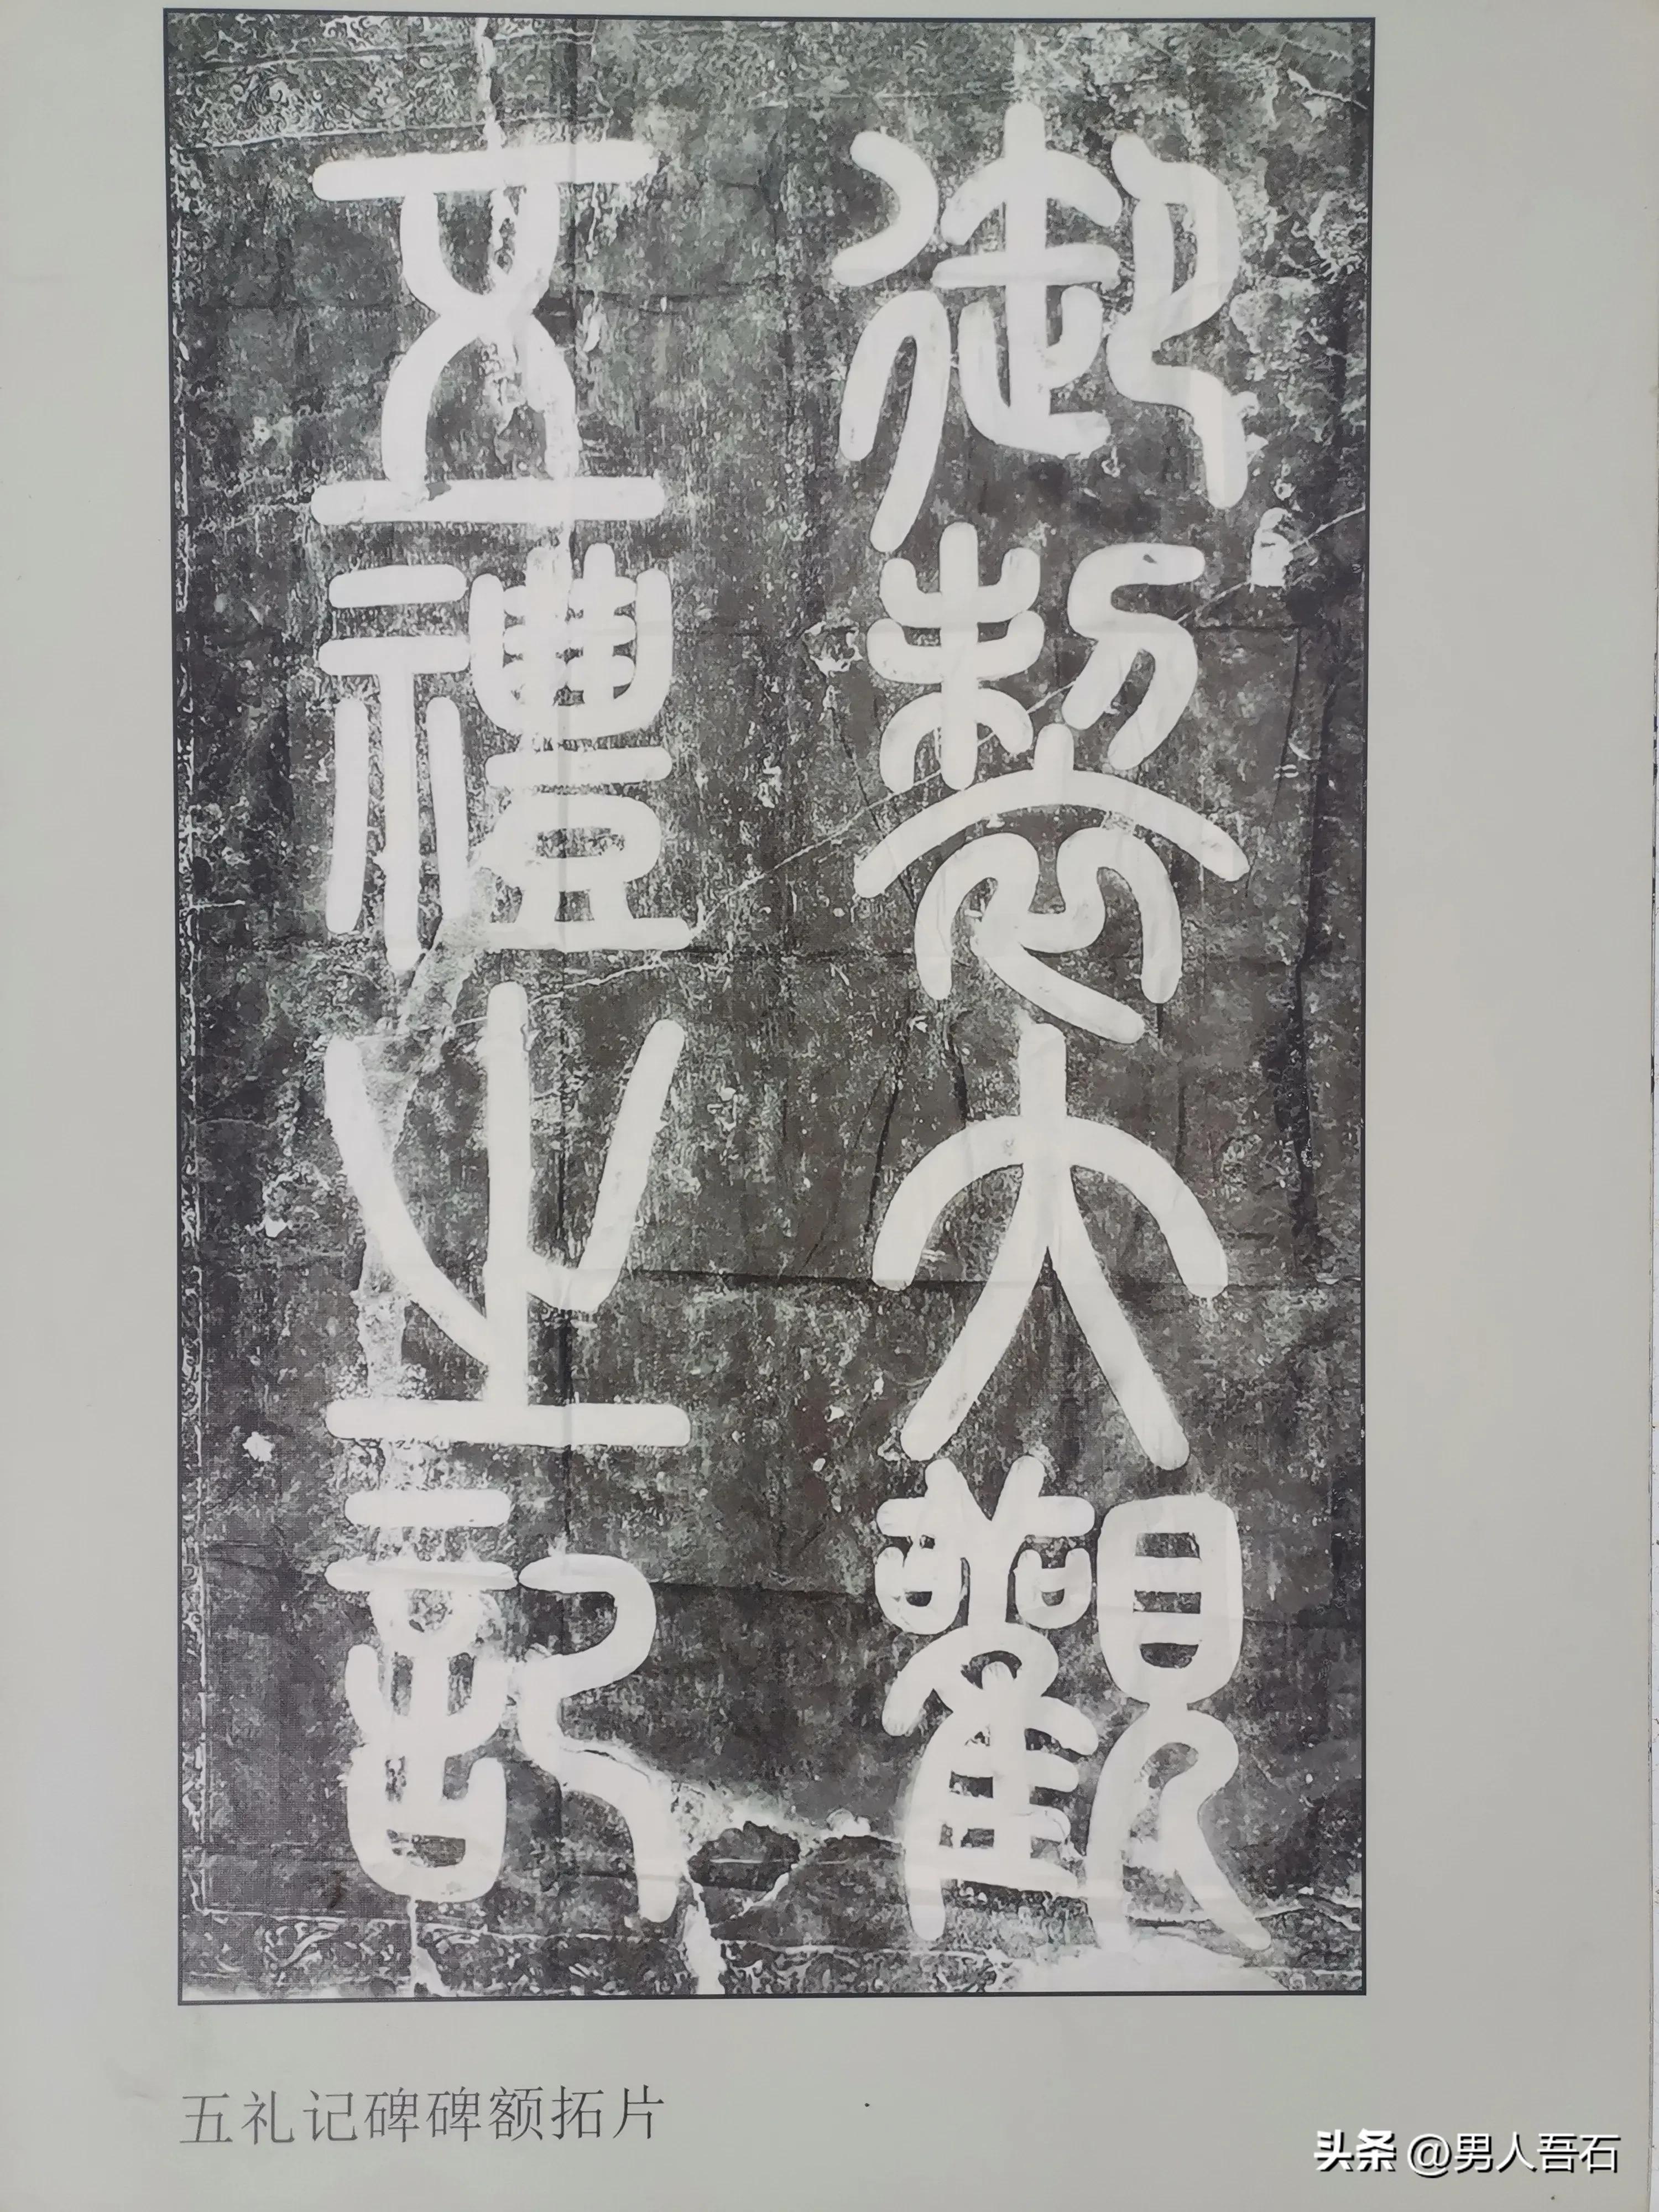 御制大觀
五禮之記
五礼记碑碑额拓片
头条 @男人吾石